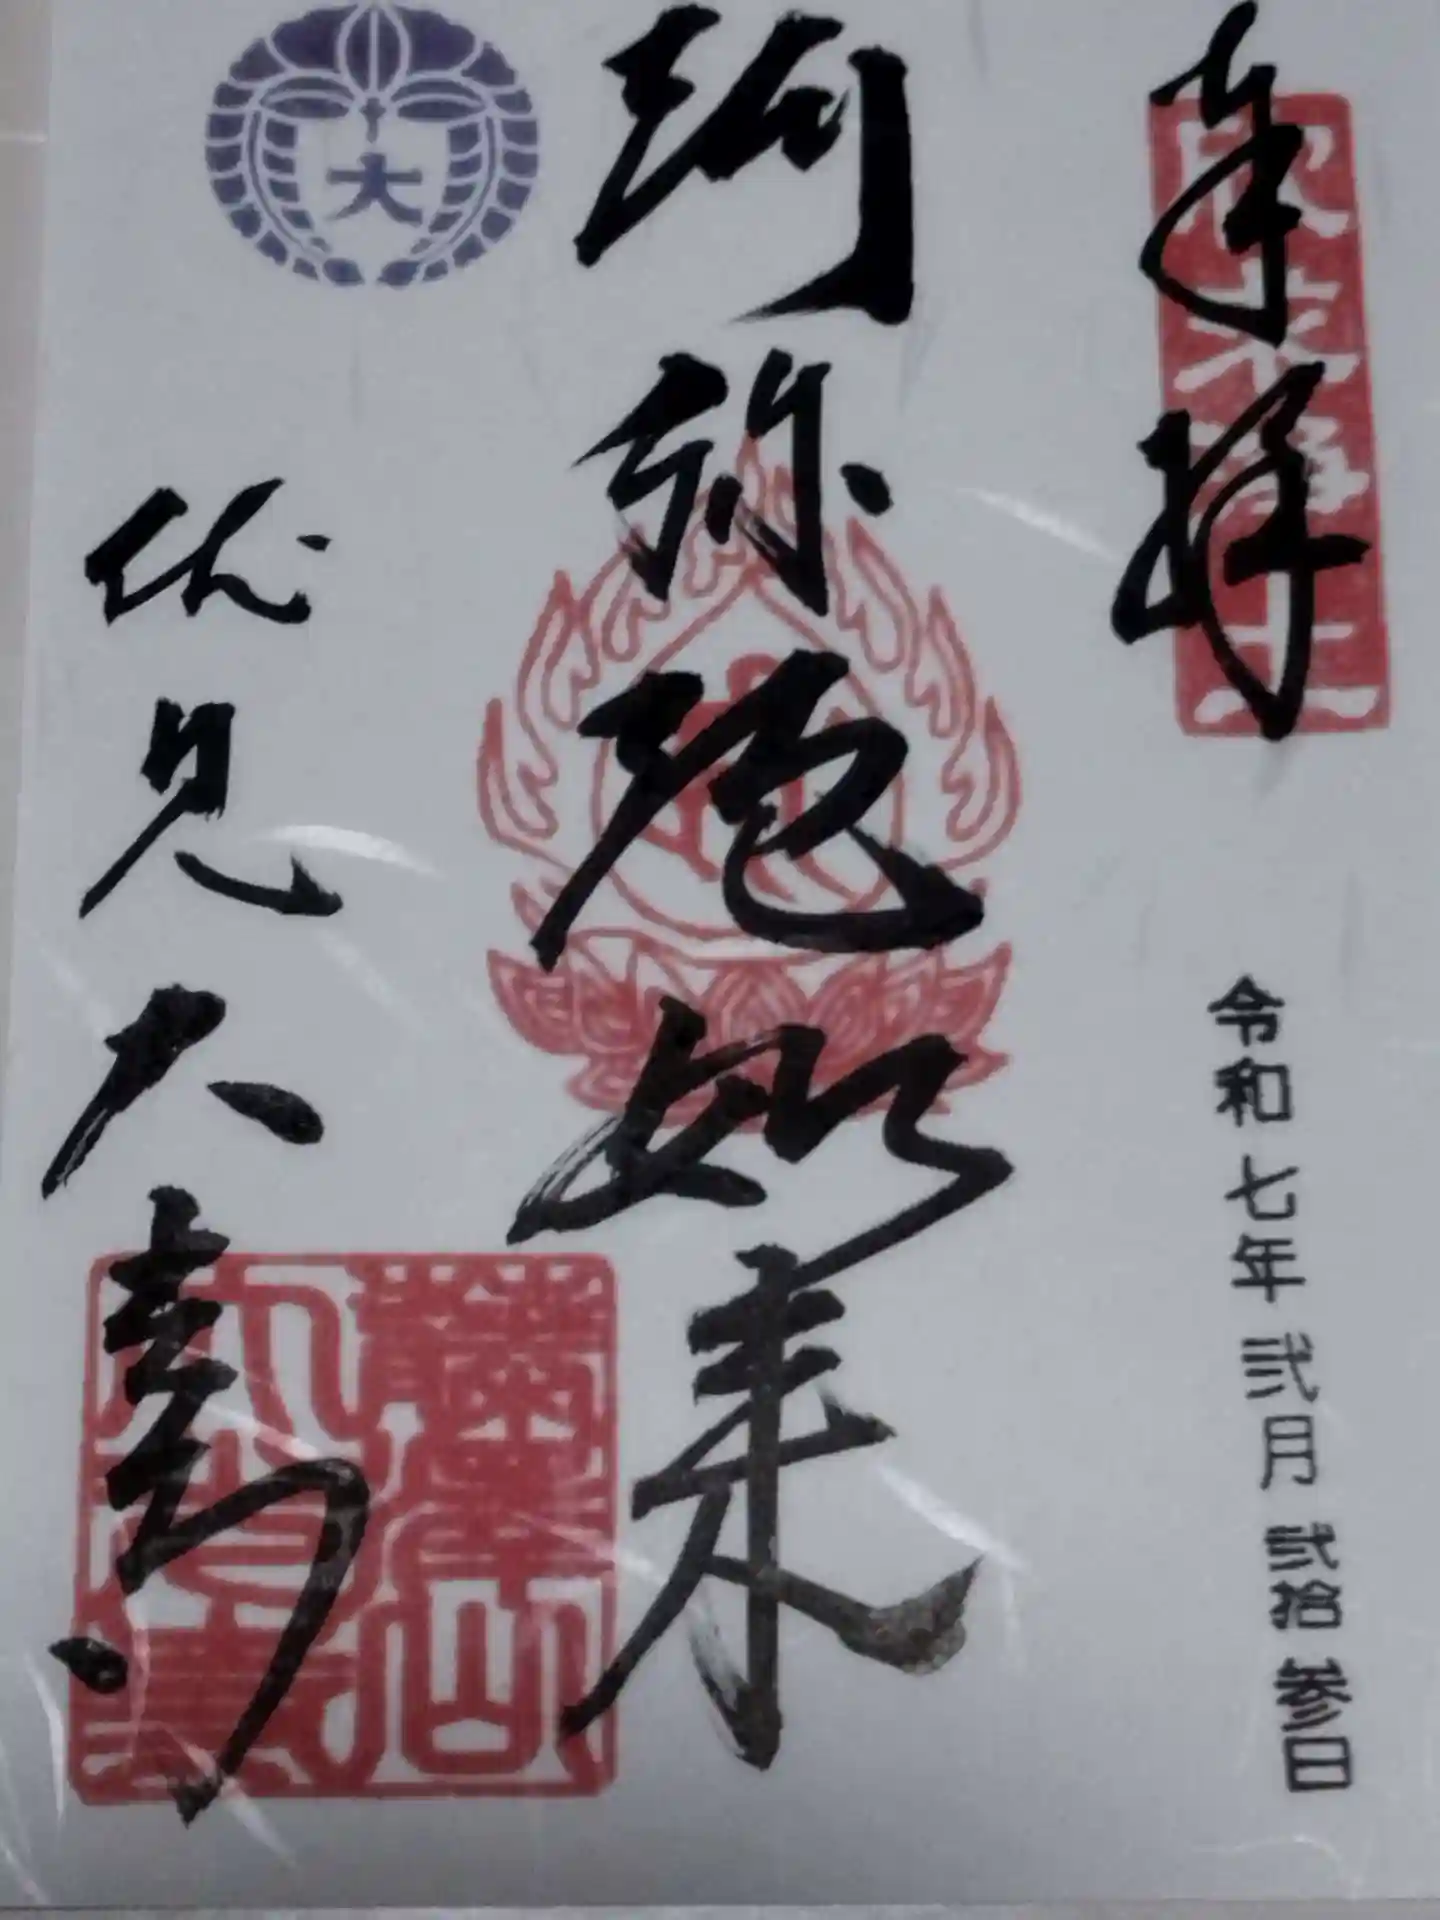 奉拝
欣求浄土
令和七年弐月弐拾参日
阿弥陀如来
大
伏見大寺